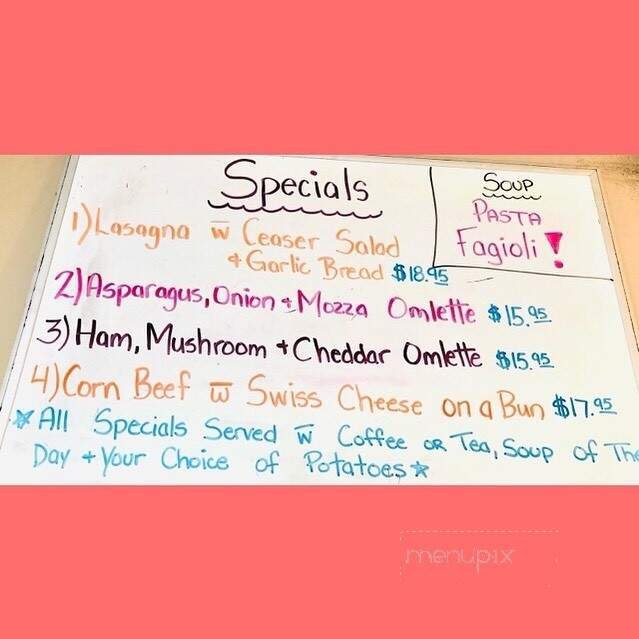 Specials
1) Lasagna w̅ Ceaser Salad
+ Garlic Bread $18.95
2) Asparagus, Onion + Mozza Omlette $15.95
3) Ham, Mushroom + Cheddar Omlette $15.95
4) Corn Beef w̅ Swiss Cheese on a Bun $17.95
* All Specials Served w̅ Coffee OR Tea, Soup of The
Day + Your Choice of Potatoes *
Soup
PASTA
Fagioli !
menupix